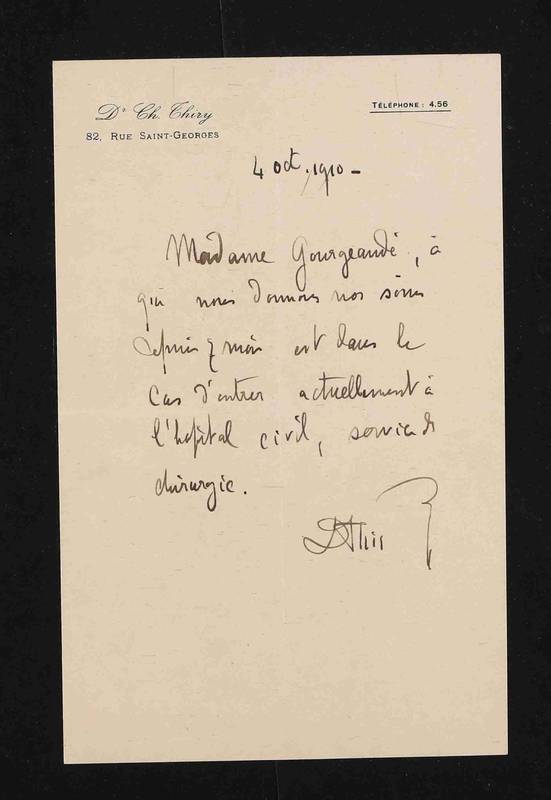 Dr Ch. Thiry
82, Rue Saint-Georges
Téléphone : 4.56
4 oct. 1910 -
Madame Gourgeaudé, à
qui nous donnons nos soins
depuis mois est dans le
cas d'entrer actuellement à
l'hôpital civil, service de
chirurgie.